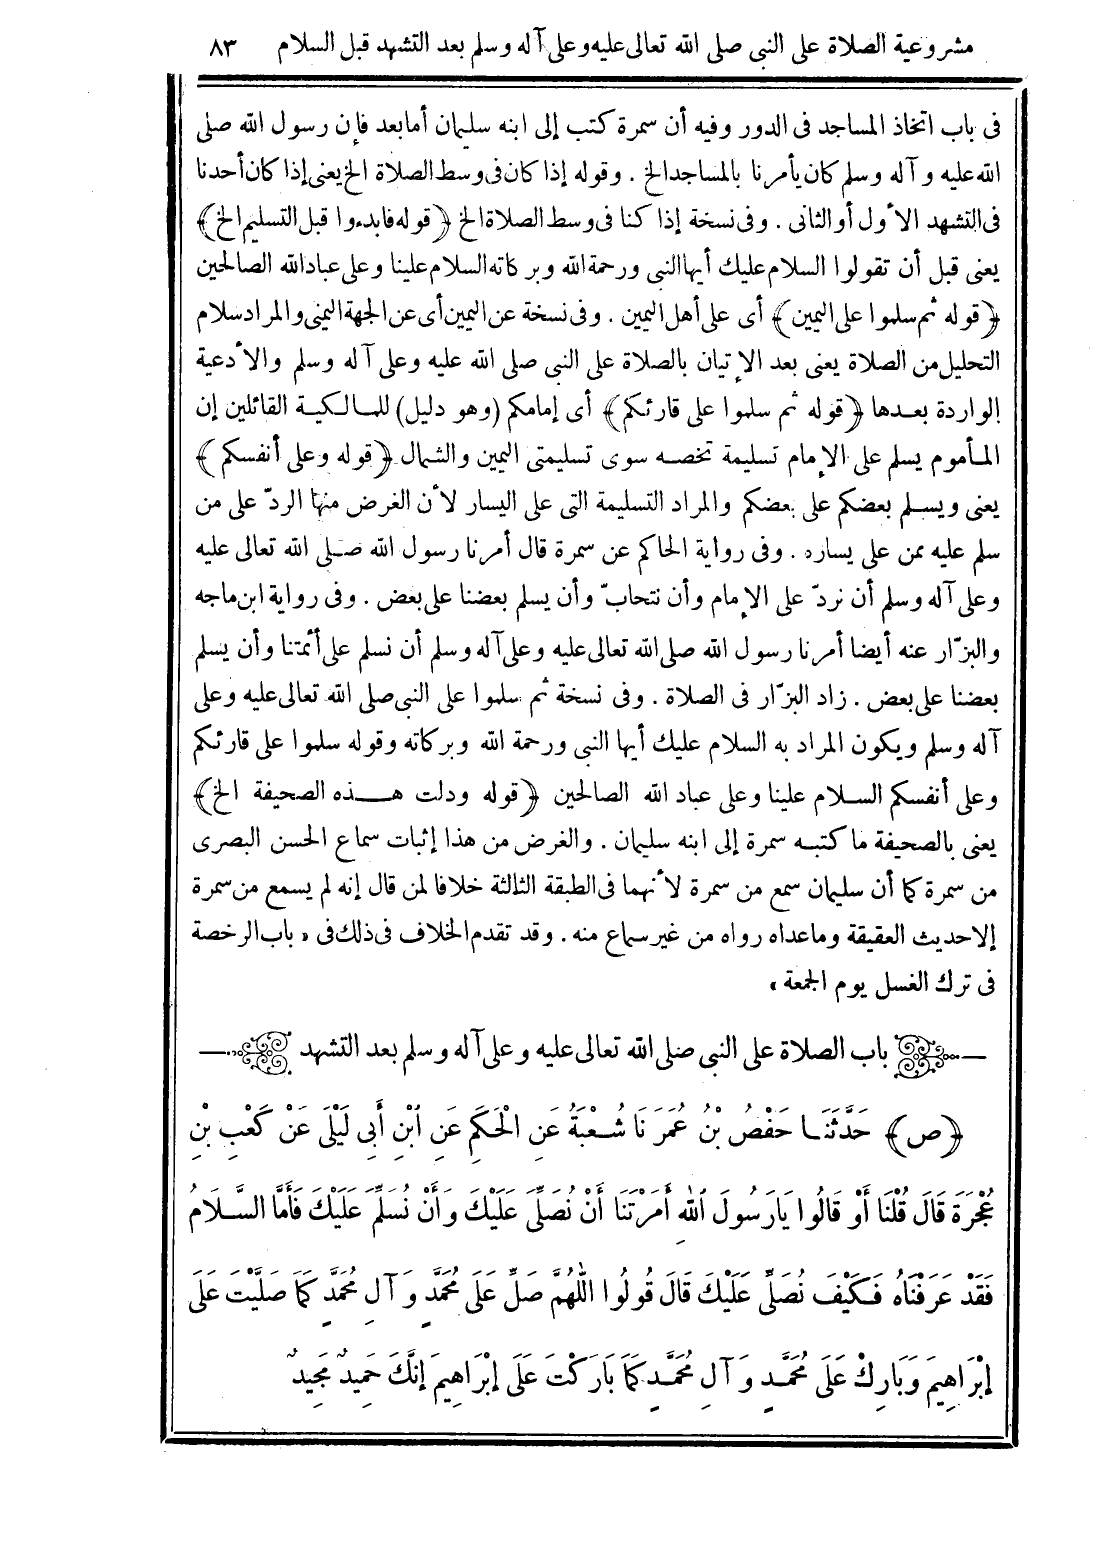 مشروعية الصلاة على النبى صلى الله تعالى عليه وعلى آله وسلم بعد التشهد قبل السلام ٨٣
فى باب اتخاذ المساجد فى الدور وفيه أن سمرة كتب إلى ابنه سليمان أما بعد فإن رسول الله صلى
الله عليه وآله وسلم كان يأمرنا بالمساجد الخ . وقوله إذا كان فى وسط الصلاة الخ يعنى إذا كان أحدنا
فى التشهد الأول أو الثانى . وفى نسخة إذا كنا فى وسط الصلاة الخ ﴿قوله فابدءوا قبل التسليم الخ﴾
يعنى قبل أن تقولوا السلام عليك أيها النبى ورحمة الله وبركاته السلام علينا وعلى عباد الله الصالحين
﴿قوله ثم سلموا على اليمين﴾ أى على أهل اليمين . وفى نسخة عن اليمين أى عن الجهة اليمنى والمراد سلام
التحليل من الصلاة يعنى بعد الإتيان بالصلاة على النبى صلى الله عليه وعلى آله وسلم والأدعية
الواردة بعدها ﴿قوله ثم سلموا على قارئكم﴾ أى إمامكم (وهو دليل) للمالكية القائلين إن
المأموم يسلم على الإمام تسليمة تخصه سوى تسليمتى اليمين والشمال ﴿قوله وعلى أنفسكم﴾
يعنى ويسلم بعضكم على بعضكم والمراد التسليمة التى على اليسار لأن الغرض منها الردّ على من
سلم عليه ممن على يساره . وفى رواية الحاكم عن سمرة قال أمرنا رسول الله صلى الله تعالى عليه
وعلى آله وسلم أن نردّ على الإمام وأن نتحابّ وأن يسلم بعضنا على بعض . وفى رواية ابن ماجه
والبزّار عنه أيضا أمرنا رسول الله صلى الله تعالى عليه وعلى آله وسلم أن نسلم على أئمتنا وأن يسلم
بعضنا على بعض . زاد البزّار فى الصلاة . وفى نسخة ثم سلموا على النبى صلى الله تعالى عليه وعلى
آله وسلم ويكون المراد به السلام عليك أيها النبى ورحمة الله وبركاته وقوله سلموا على قارئكم
وعلى أنفسكم السلام علينا وعلى عباد الله الصالحين ﴿قوله ودلت هذه الصحيفة الخ﴾
يعنى بالصحيفة ما كتبه سمرة إلى ابنه سليمان . والغرض من هذا إثبات سماع الحسن البصرى
من سمرة كما أن سليمان سمع من سمرة لأنهما فى الطبقة الثالثة خلافا لمن قال إنه لم يسمع من سمرة
إلا حديث العقيقة وما عداه رواه من غير سماع منه . وقد تقدم الخلاف فى ذلك فى « باب الرخصة
فى ترك الغسل يوم الجمعة »
باب الصلاة على النبى صلى الله تعالى عليه وعلى آله وسلم بعد التشهد
﴿ص﴾ حَدَّثَنَا حَفْصُ بْنُ عُمَرَ نَا شُعْبَةُ عَنِ الْحَكَمِ عَنِ ابْنِ أَبِى لَيْلَى عَنْ كَعْبِ بْنِ
عُجْرَةَ قَالَ قُلْنَا أَوْ قَالُوا يَارَسُولَ اللهِ أَمَرْتَنَا أَنْ نُصَلِّىَ عَلَيْكَ وَأَنْ نُسَلِّمَ عَلَيْكَ فَأَمَّا السَّلَامُ
فَقَدْ عَرَفْنَاهُ فَكَيْفَ نُصَلِّى عَلَيْكَ قَالَ قُولُوا اللّٰهُمَّ صَلِّ عَلَى مُحَمَّدٍ وَآلِ مُحَمَّدٍ كَمَا صَلَّيْتَ عَلَى
إِبْرَاهِيمَ وَبَارِكْ عَلَى مُحَمَّدٍ وَآلِ مُحَمَّدٍ كَمَا بَارَكْتَ عَلَى إِبْرَاهِيمَ إِنَّكَ حَمِيدٌ مَجِيدٌ